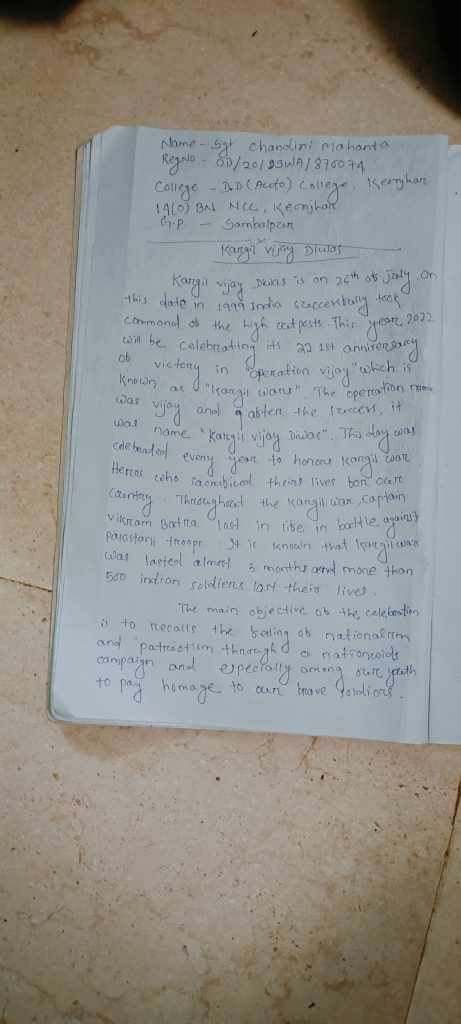 Name - Sgt Chandini Mahanta
Reg No - OD/20/SWA/876074
College - D.D (Auto) College, Keonjhar
14(O) BN NCC, Keonjhar
G.p. - Sambalpur
Kargil vijay Diwas
Kargil vijay Diwas is on 26th of July. On
this date in 1999 India successfully took
command of the high outposts. This year, 2022
will be celebrating its 22 1st anniversary
of victory in "Operation vijay" which is
known as "Kargil wars". The operation name
was vijay and after the success, it
was name "Kargil vijay Diwas". This day was
celebrated every year to honour Kargil war
Heroes who sacrificed their lives for our
Country. Throughout the Kargil war, Captain
vikram Batra lost in life in battle against
pakistani troops. It is known that Kargil war
was lasted almost 3 months and more than
500 indian soldiers lost their lives.
The main objective of the celebration
is to recalls the feeling of nationalism
and patriotism through a nationwide
campaign and especially among our youth
to pay homage to our brave soldiers.